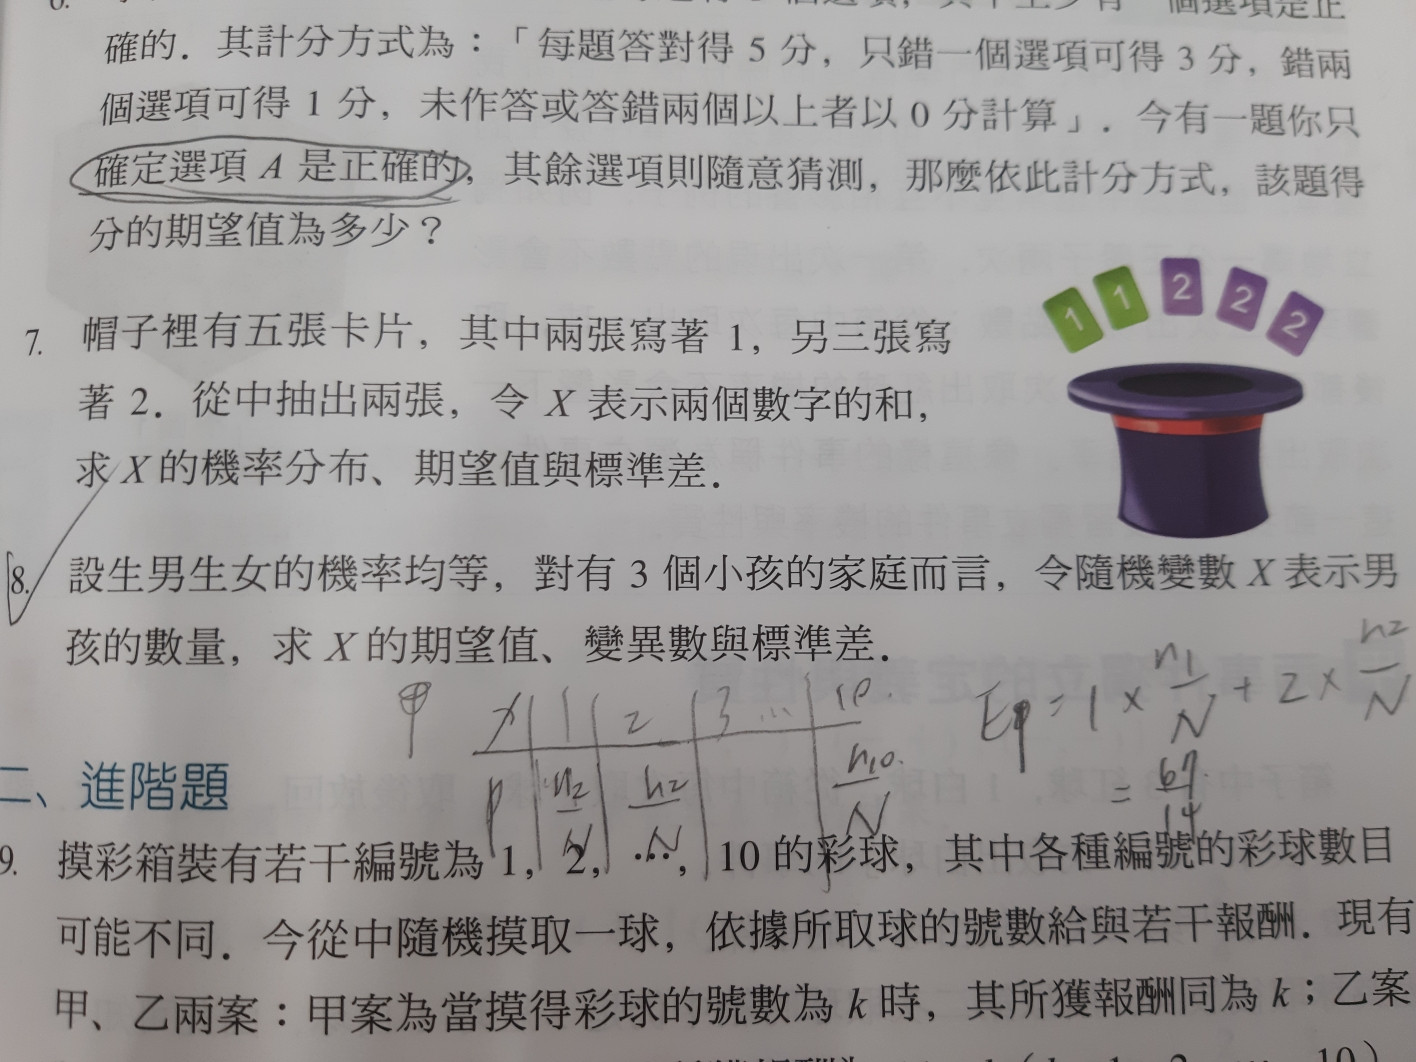 6.
個選項，其中至少有一個選項是正
確的．其計分方式為：「每題答對得 5 分，只錯一個選項可得 3 分，錯兩
個選項可得 1 分，未作答或答錯兩個以上者以 0 分計算」．今有一題你只
確定選項 A 是正確的，其餘選項則隨意猜測，那麼依此計分方式，該題得
分的期望值為多少？
1 1 2 2 2
7. 帽子裡有五張卡片，其中兩張寫著 1，另三張寫
著 2．從中抽出兩張，令 X 表示兩個數字的和，
求 X 的機率分布、期望值與標準差．
8. 設生男生女的機率均等，對有 3 個小孩的家庭而言，令隨機變數 X 表示男
孩的數量，求 X 的期望值、變異數與標準差．
甲 x 1 2 3 ... 10
E甲 = 1 × n1/N + 2 × n2/N
p n2/N n10/N
= 67/14
二、進階題
9. 摸彩箱裝有若干編號為 1，2，…，10 的彩球，其中各種編號的彩球數目
可能不同．今從中隨機摸取一球，依據所取球的號數給與若干報酬．現有
甲、乙兩案：甲案為當摸得彩球的號數為 k 時，其所獲報酬同為 k；乙案